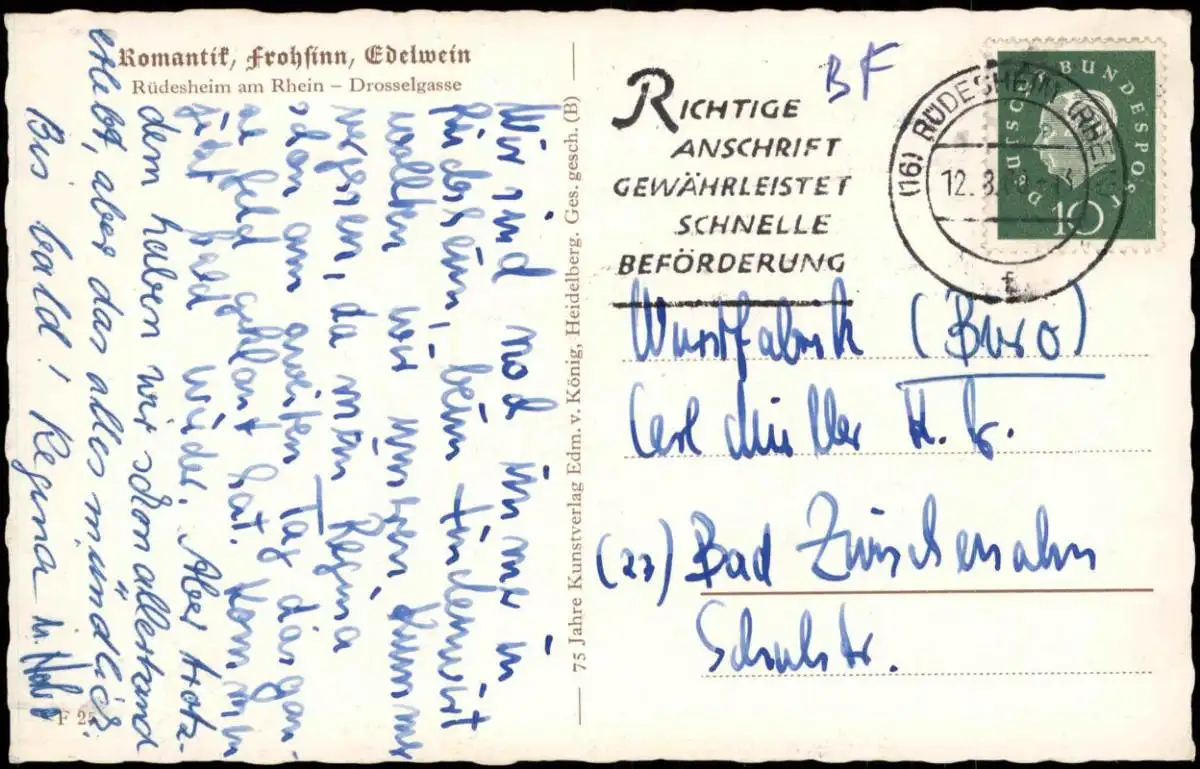 Romantik, Frohsinn, Edelwein
Rüdesheim am Rhein – Drosselgasse
Wir sind noch immer in
Rüdesheim, beim Lindenwirt
wollten wir unseren Kummer
vergessen, da man Regina
schon am zweiten Tag das gan-
ze Geld geklaut hat. Komm'n
jetzt bald wieder. Aber trotz-
dem haben wir schon allerhand
erlebt, aber das alles mündlich.
Bis bald! Regina u.
F 25
75 Jahre Kunstverlag Edm. v. König, Heidelberg. Ges. gesch. (B)
BF
RICHTIGE
ANSCHRIFT
GEWÄHRLEISTET
SCHNELLE
BEFÖRDERUNG
(16) RÜDESHEIM (RHEIN)
12.8.
f
DEUTSCHE BUNDESPOST
10
Wurstfabrik (Büro)
Carl Müller K.G.
(23) Bad Zwischenahn
Schulstr.